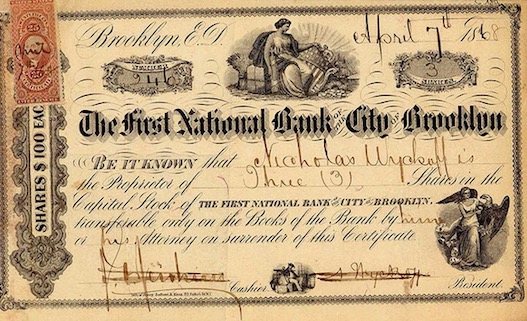 Brooklyn, E.D. April 7th 1868
NUMBER SHARES
246 3
The First National Bank OF THE City OF Brooklyn
BE IT KNOWN that Nicholas Wyckoff is
the Proprietor of Three (3) Shares in the
Capital Stock of THE FIRST NATIONAL BANK OF THE CITY OF BROOKLYN.
transferable only on the Books of the Bank by him
or his Attorney on surrender of this Certificate
Cashier. N Wyckoff President.
SHARES $ 100 EACH
25